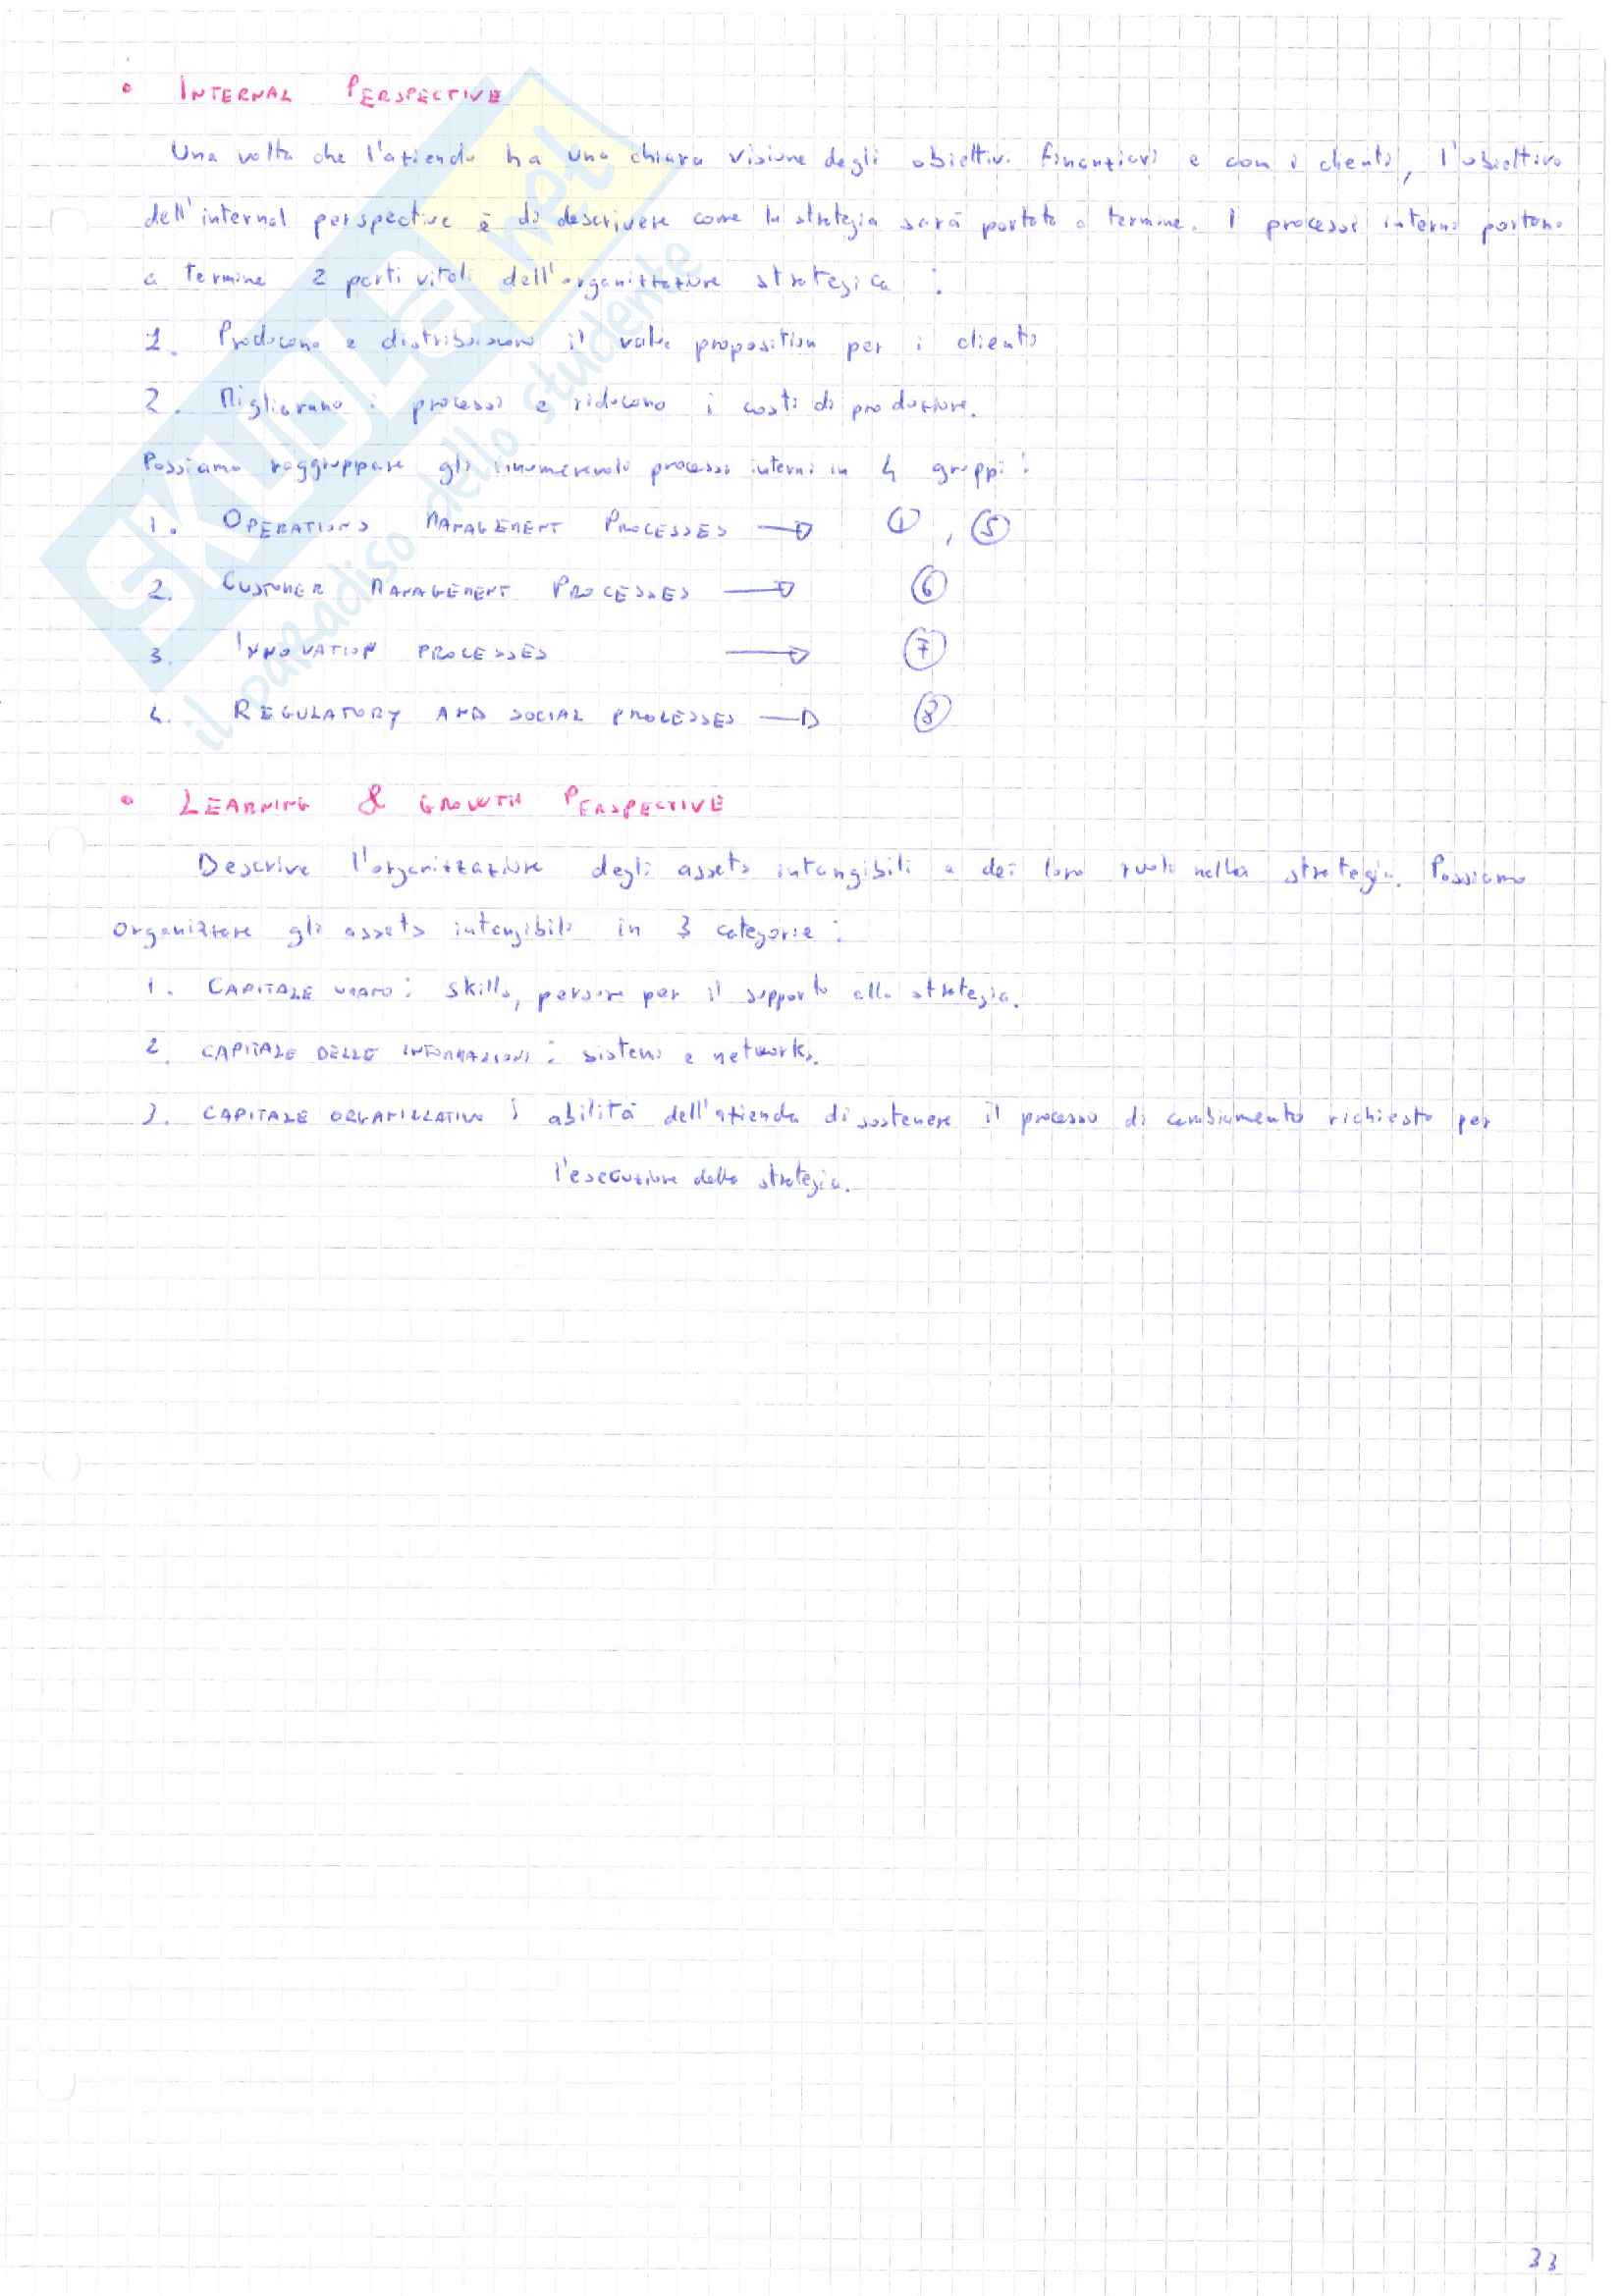 • INTERNAL PERSPECTIVE
Una volta che l'azienda ha una chiara visione degli obiettivi finanziari e con i clienti, l'obiettivo
dell'internal perspective è di descrivere come la strategia sarà portata a termine. I processi interni portano
a termine 2 parti vitali dell'organizzazione strategica :
1. Producono e distribuiscono il value proposition per i clienti
2. Migliorano i processi e riducono i costi di produzione.
Possiamo raggruppare gli innumerevoli processi interni in 4 gruppi :
1. OPERATIONS MANAGEMENT PROCESSES → , ⑤
2. CUSTOMER MANAGEMENT PROCESSES → ⑥
3. INNOVATION PROCESSES → ⑦
4. REGULATORY AND SOCIAL PROCESSES → ⑧
• LEARNING & GROWTH PERSPECTIVE
Descrive l'organizzazione degli assets intangibili e dei loro ruoli nella strategia. Possiamo
organizzare gli assets intangibili in 3 categorie :
1. CAPITALE UMANO : skills, persone per il supporto alla strategia.
2. CAPITALE DELLE INFORMAZIONI : sistemi e networks.
3. CAPITALE ORGANIZZATIVO : abilità dell'azienda di sostenere il processo di cambiamento richiesto per
l'esecuzione della strategia.
33
SKUOLA.net
il paradiso dello studente